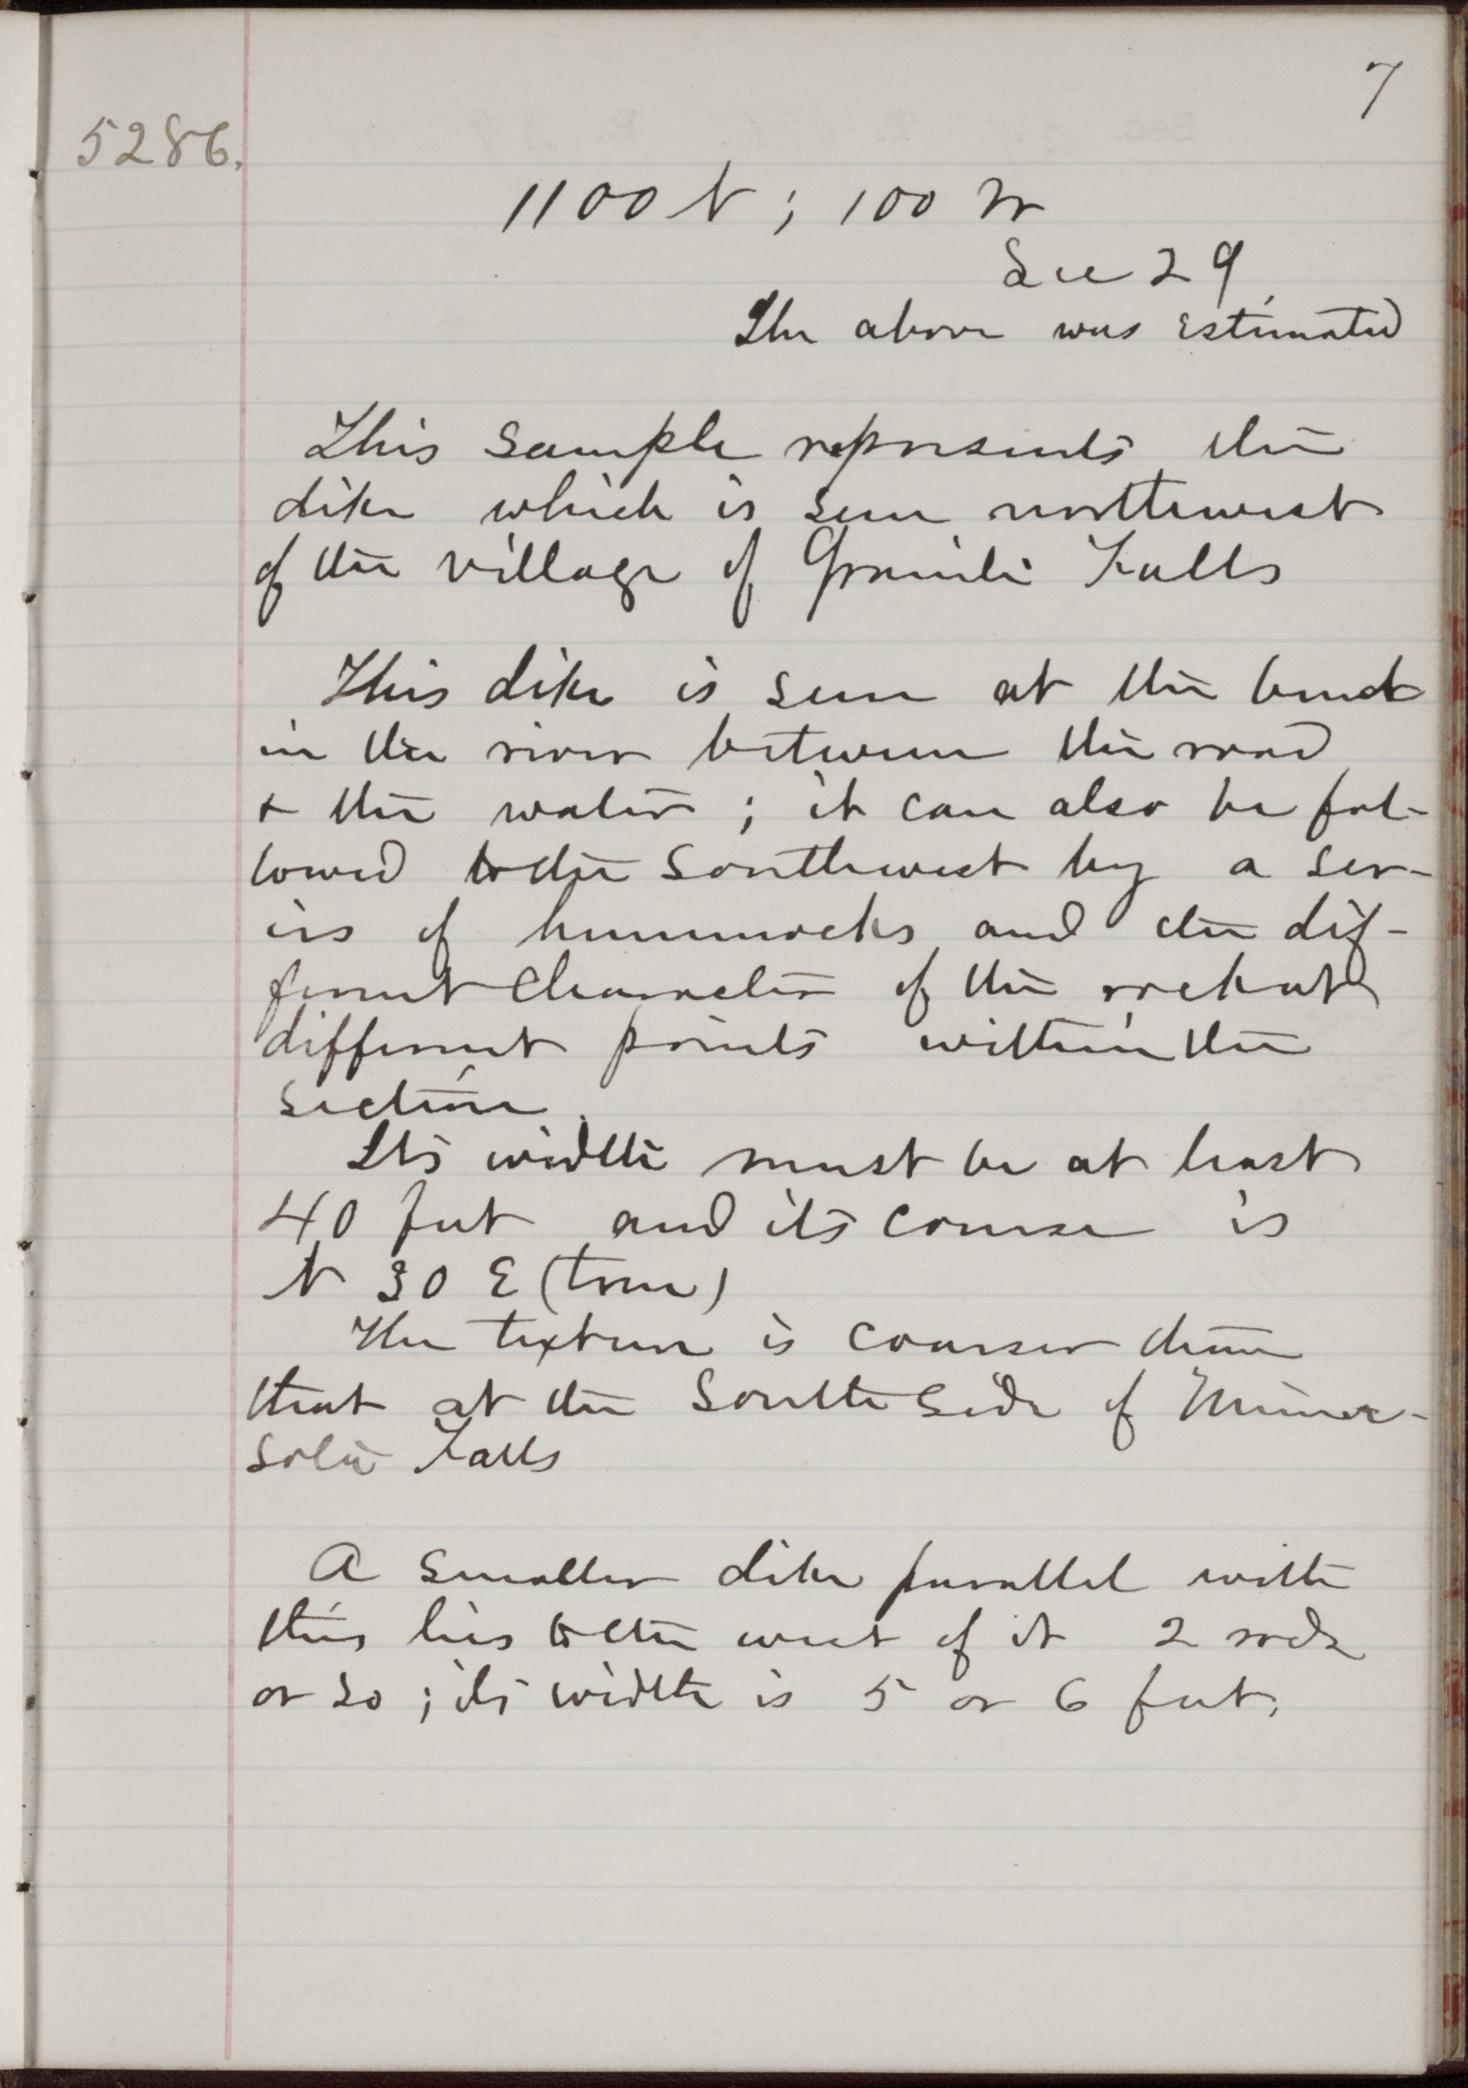 7
5286.
1100 N ; 100 W
Sec 29
The above was estimated
This sample represents the
dike which is seen northwest
of the village of Granite Falls
This dike is seen at the bend
in the river between the road
+ the water ; it can also be fol-
lowed to the southwest by a ser-
ies of hummocks and the dif-
ferent character of the rock at
different points within the
section.
Its width must be at least
40 feet and its course is
N 30 E (true)
The texture is coarser than
that at the south side of Minne-
sota Falls
A smaller dike parallel with
this lies to the west of it 2 rods
or so ; its width is 5 or 6 feet.